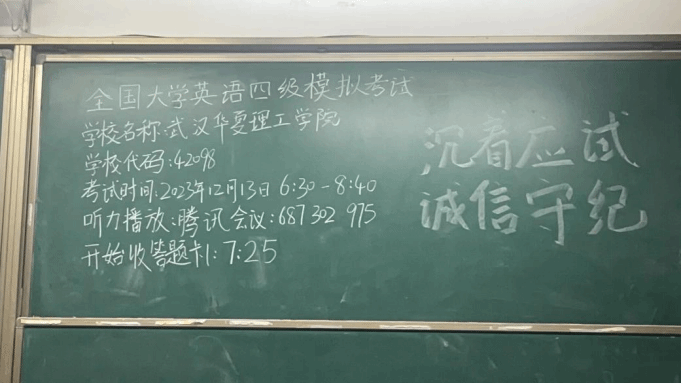 全国大学英语四级模拟考试
学校名称:武汉华夏理工学院
学校代码:42098
考试时间:2023年12月13日 6:30-8:40
听力播放:腾讯会议:687 302 975
开始收答题卡1:7:25
沉着应试
诚信守纪